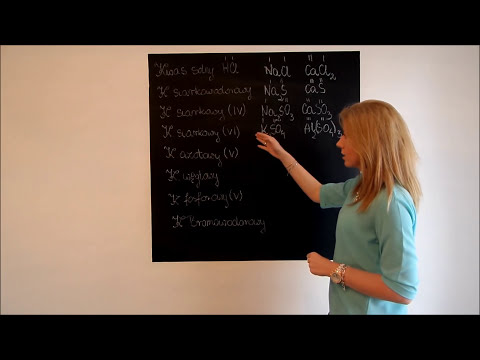 Kwas solny HCl NaCl CaCl₂
K siarkowodorowy Na₂S CaS
K siarkowy (IV) Na₂SO₃ CaSO₃
K siarkowy (VI) K SO₄ Al₂(SO₄)
K azotowy (V)
K węglowy
K fosforowy (V)
K bromowodorowy